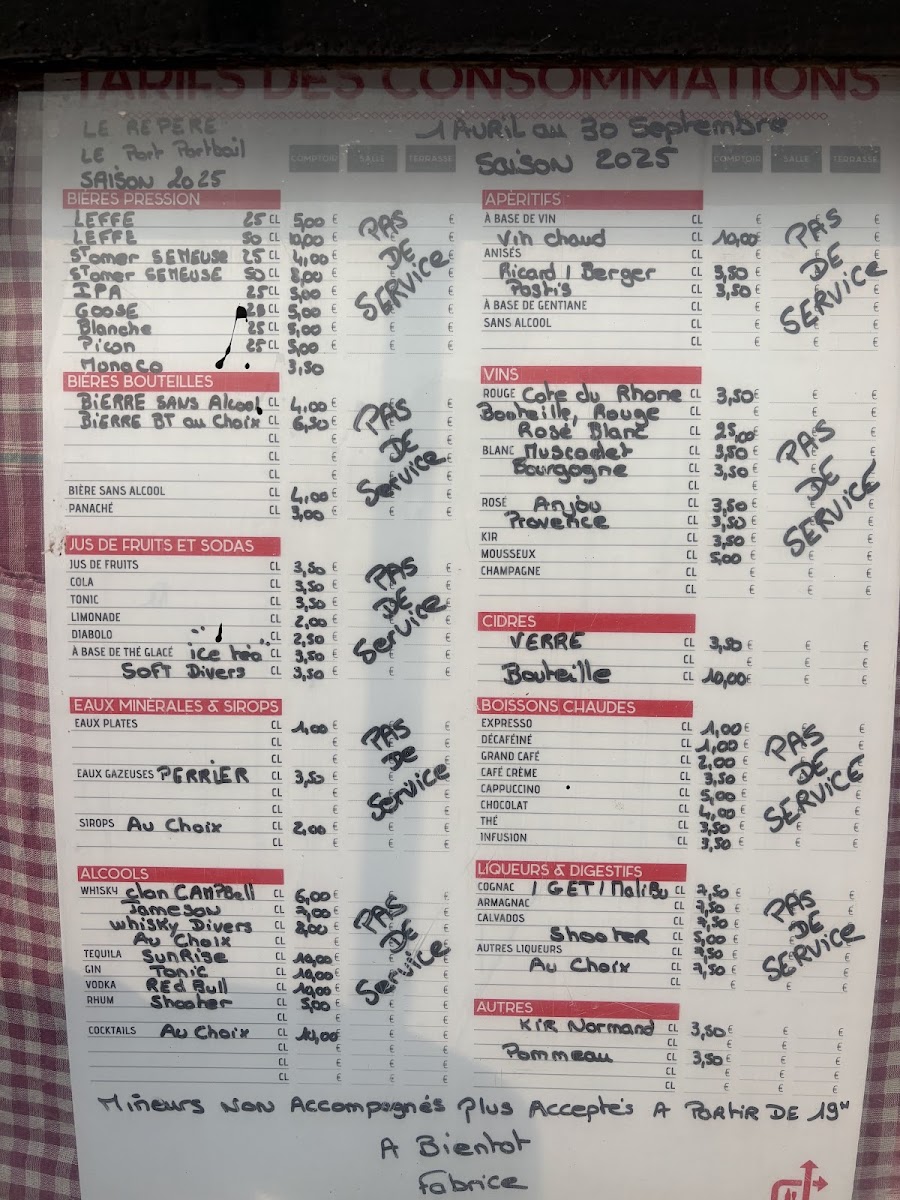 TARIFS DES CONSOMMATIONS
LE REPERE
LE Port Portbail
SAISON 2025
1 AVRIL au 30 Septembre
SAISON 2025
COMPTOIR SALLE TERRASSE
COMPTOIR SALLE TERRASSE
BIÈRES PRESSION
LEFFE 25 CL 5,00 € €
LEFFE 50 CL 10,00 € €
St omer SEMEUSE 25 CL 4,00 € €
St omer SEMEUSE 50 CL 8,00 € €
IPA 25 CL 5,00 € €
GOOSE 25 CL 5,00 € €
Blanche 25 CL 5,00 € € €
Picon 25 CL 5,00 € € €
Monaco 3,50
PAS
DE
SERVICE
BIÈRES BOUTEILLES
BIERRE SANS Alcool CL 4,00 € €
BIERRE BT au Choix CL 6,50 € €
CL € €
CL € €
CL € €
BIÈRE SANS ALCOOL CL 4,00 € € €
PANACHÉ CL 3,00 € € €
PAS
DE
Service
JUS DE FRUITS ET SODAS
JUS DE FRUITS CL 3,50 € €
COLA CL 3,50 € €
TONIC CL 3,50 € €
LIMONADE CL 2,00 € €
DIABOLO CL 2,50 € €
À BASE DE THÉ GLACÉ ice téa CL 3,50 € €
SOFT Divers CL 3,50 € € €
PAS
DE
Service
EAUX MINÉRALES & SIROPS
EAUX PLATES CL 1,00 € €
CL € €
CL € €
EAUX GAZEUSES PERRIER CL 3,50 € €
CL € €
CL € €
SIROPS Au Choix CL 2,00 € € €
CL € € €
PAS
De
Service
ALCOOLS
WHISKY Clan CAMPBell CL 6,00 € €
Jameson CL 7,00 € €
Whisky Divers CL 8,00 € €
Au Choix CL €
TEQUILA SunRise CL 10,00 € €
GIN Tonic CL 10,00 € €
VODKA REd Bull CL 10,00 € €
RHUM Shooter CL 5,00 € € €
COCKTAILS Au Choix CL 10,00 € € €
CL € € €
CL € € €
CL € € €
PAS
DE
Service
APÉRITIFS
À BASE DE VIN CL € €
Vin chaud CL 10,00 € €
ANISÉS CL € €
Ricard / Berger CL 3,50 € €
Pastis CL 3,50 € €
À BASE DE GENTIANE CL € €
SANS ALCOOL CL € € €
CL € € €
PAS
DE
SERVICE
VINS
ROUGE Cote du Rhone CL 3,50 € € €
Bouteille, Rouge CL
Rosé Blanc CL 25,00 € €
BLANC Muscadet CL 3,50 € €
Bourgogne CL 3,50 € €
CL € €
ROSÉ Anjou CL 3,50 € €
Provence CL 3,50 € €
KIR CL 3,50 € €
MOUSSEUX CL 5,00 € € €
CHAMPAGNE CL € € €
CL € € €
PAS
DE
SERVICE
CIDRES
VERRE CL 3,50 € € €
CL € € €
Bouteille CL 10,00 € € €
BOISSONS CHAUDES
EXPRESSO CL 1,00 € €
DÉCAFÉINÉ CL 1,00 € €
GRAND CAFÉ CL 2,00 € €
CAFÉ CRÈME CL 3,50 € €
CAPPUCCINO CL 5,00 € €
CHOCOLAT CL 4,00 € €
THÉ CL 3,50 € €
INFUSION CL 3,50 € € €
PAS
DE
SERVICE
LIQUEURS & DIGESTIFS
COGNAC / GET / Malibu CL 7,50 € €
ARMAGNAC CL 7,50 € €
CALVADOS CL 7,50 € €
Shooter CL 5,00 € €
AUTRES LIQUEURS CL 7,50 € €
Au Choix CL 7,50 € €
CL € € €
PAS
DE
SERVICE
AUTRES
KIR Normand CL 3,50 € € €
CL € € €
Pommeau CL 3,50 € € €
CL € € €
CL € € €
Mineurs NON Accompagnés Plus Acceptés A PARTIR DE 19H
A Bientot
Fabrice